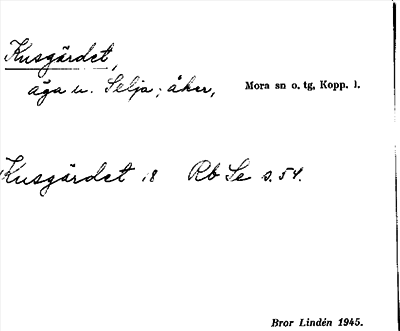 Kusgärdet,
äga u. Selja; åker, Mora sn o. tg, Kopp. l.
Kusgärdet i8 Rb Se s. 54.
Bror Lindén 1945.